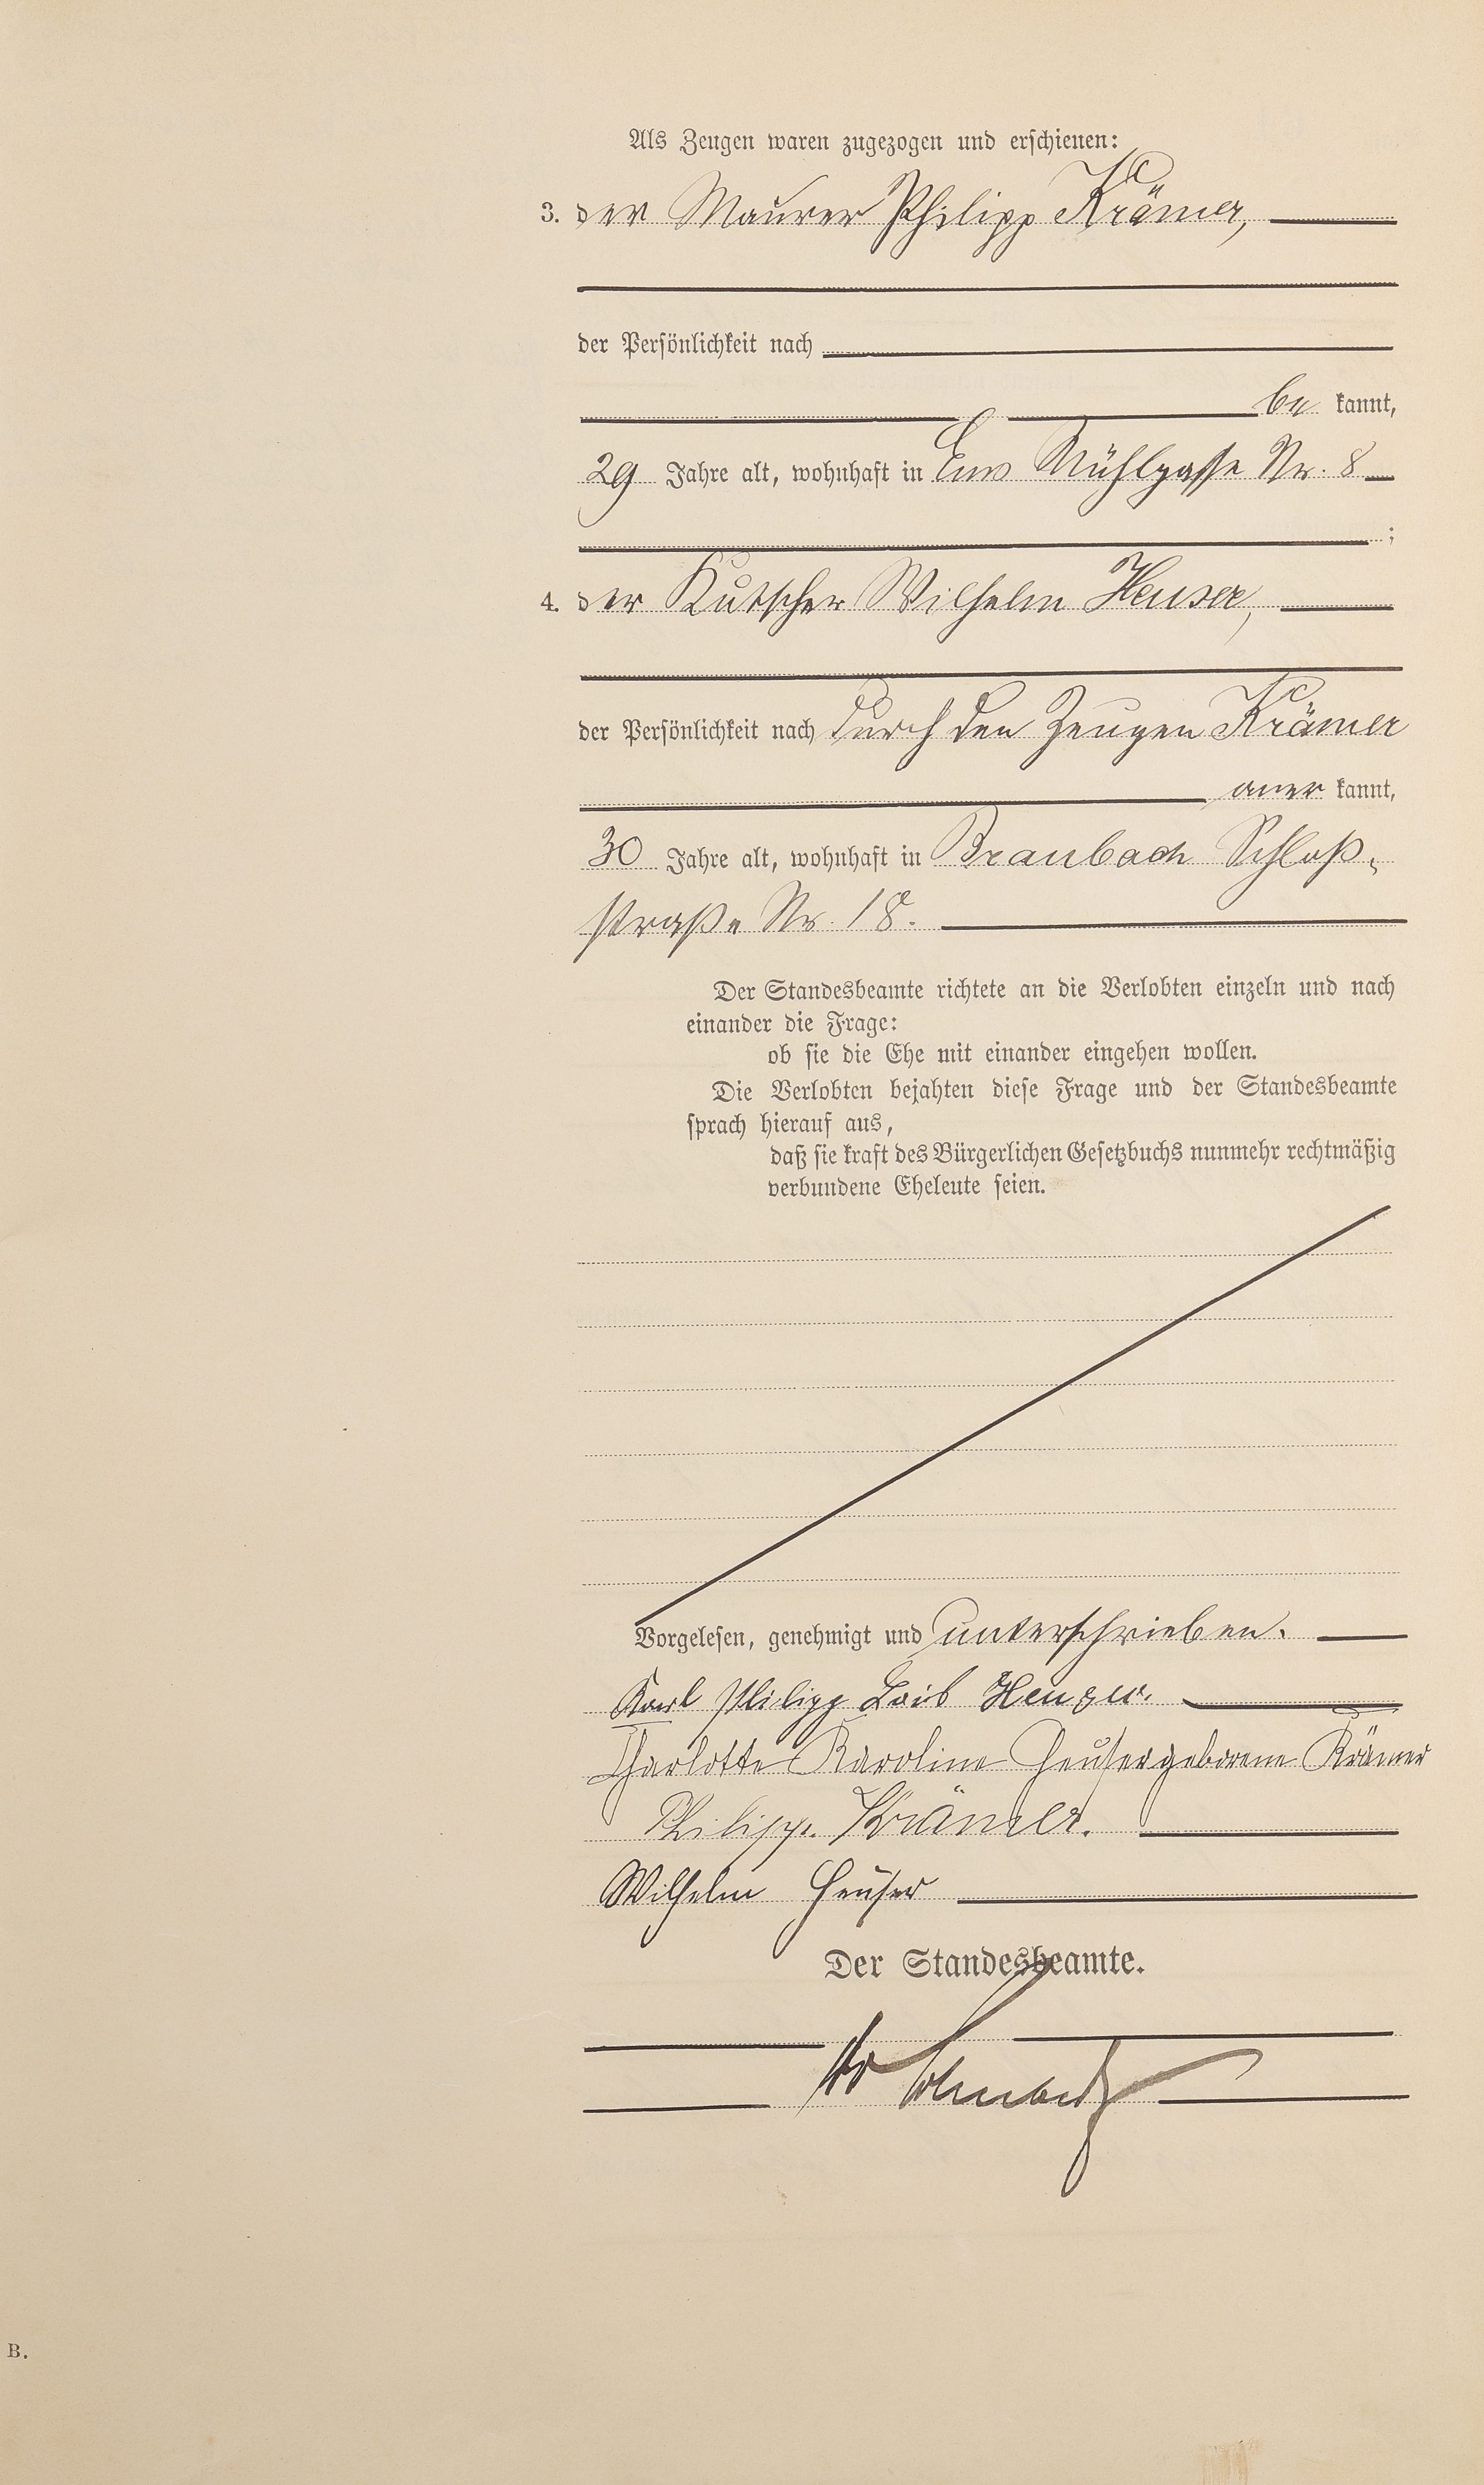 Als Zeugen waren zugezogen und erschienen:
3. der Maurer Philipp Krämer,
der Persönlichkeit nach
be kannt,
29 Jahre alt, wohnhaft in Ems Mühlgasse Nr. 8
;
4. der Kutscher Wilhelm Heuser,
der Persönlichkeit nach durch den Zeugen Krämer
aner kannt,
30 Jahre alt, wohnhaft in Braubach Schloß-
straße Nr. 18.
Der Standesbeamte richtete an die Verlobten einzeln und nach
einander die Frage:
ob sie die Ehe mit einander eingehen wollen.
Die Verlobten bejahten diese Frage und der Standesbeamte
sprach hierauf aus,
daß sie kraft des Bürgerlichen Gesetzbuchs nunmehr rechtmäßig
verbundene Eheleute seien.
Vorgelesen, genehmigt und unterschrieben.
Karl Philipp Heuser.
Charlotte Karoline Heuser geborene Krämer
Philipp Krämer.
Wilhelm Heuser
Der Standesbeamte.
B.